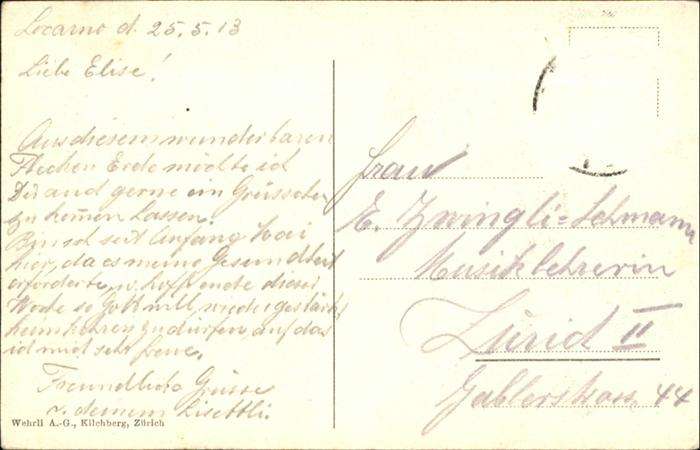 Locarno d. 25.5.13
Liebe Elise!
Aus diesem wunderbaren
Flecken Erde möchte ich
Dir auch gerne ein Grüsschen
zu kommen lassen.
Bin ich seit Anfang Mai
hier, da es meine Gesundheit
erforderte, u. hoffe ende dieser
Woche so Gott will, wieder gestärkt
heimkehren zu dürfen, auf das
ich mich sehr freue.
Freundliche Grüsse
v. deinem Lisettli.
Wehrli A.-G., Kilchberg, Zürich
Frau
E. Zwingli-Lehmann
Musiklehrerin
Zürich II
Gablerstrass. 44